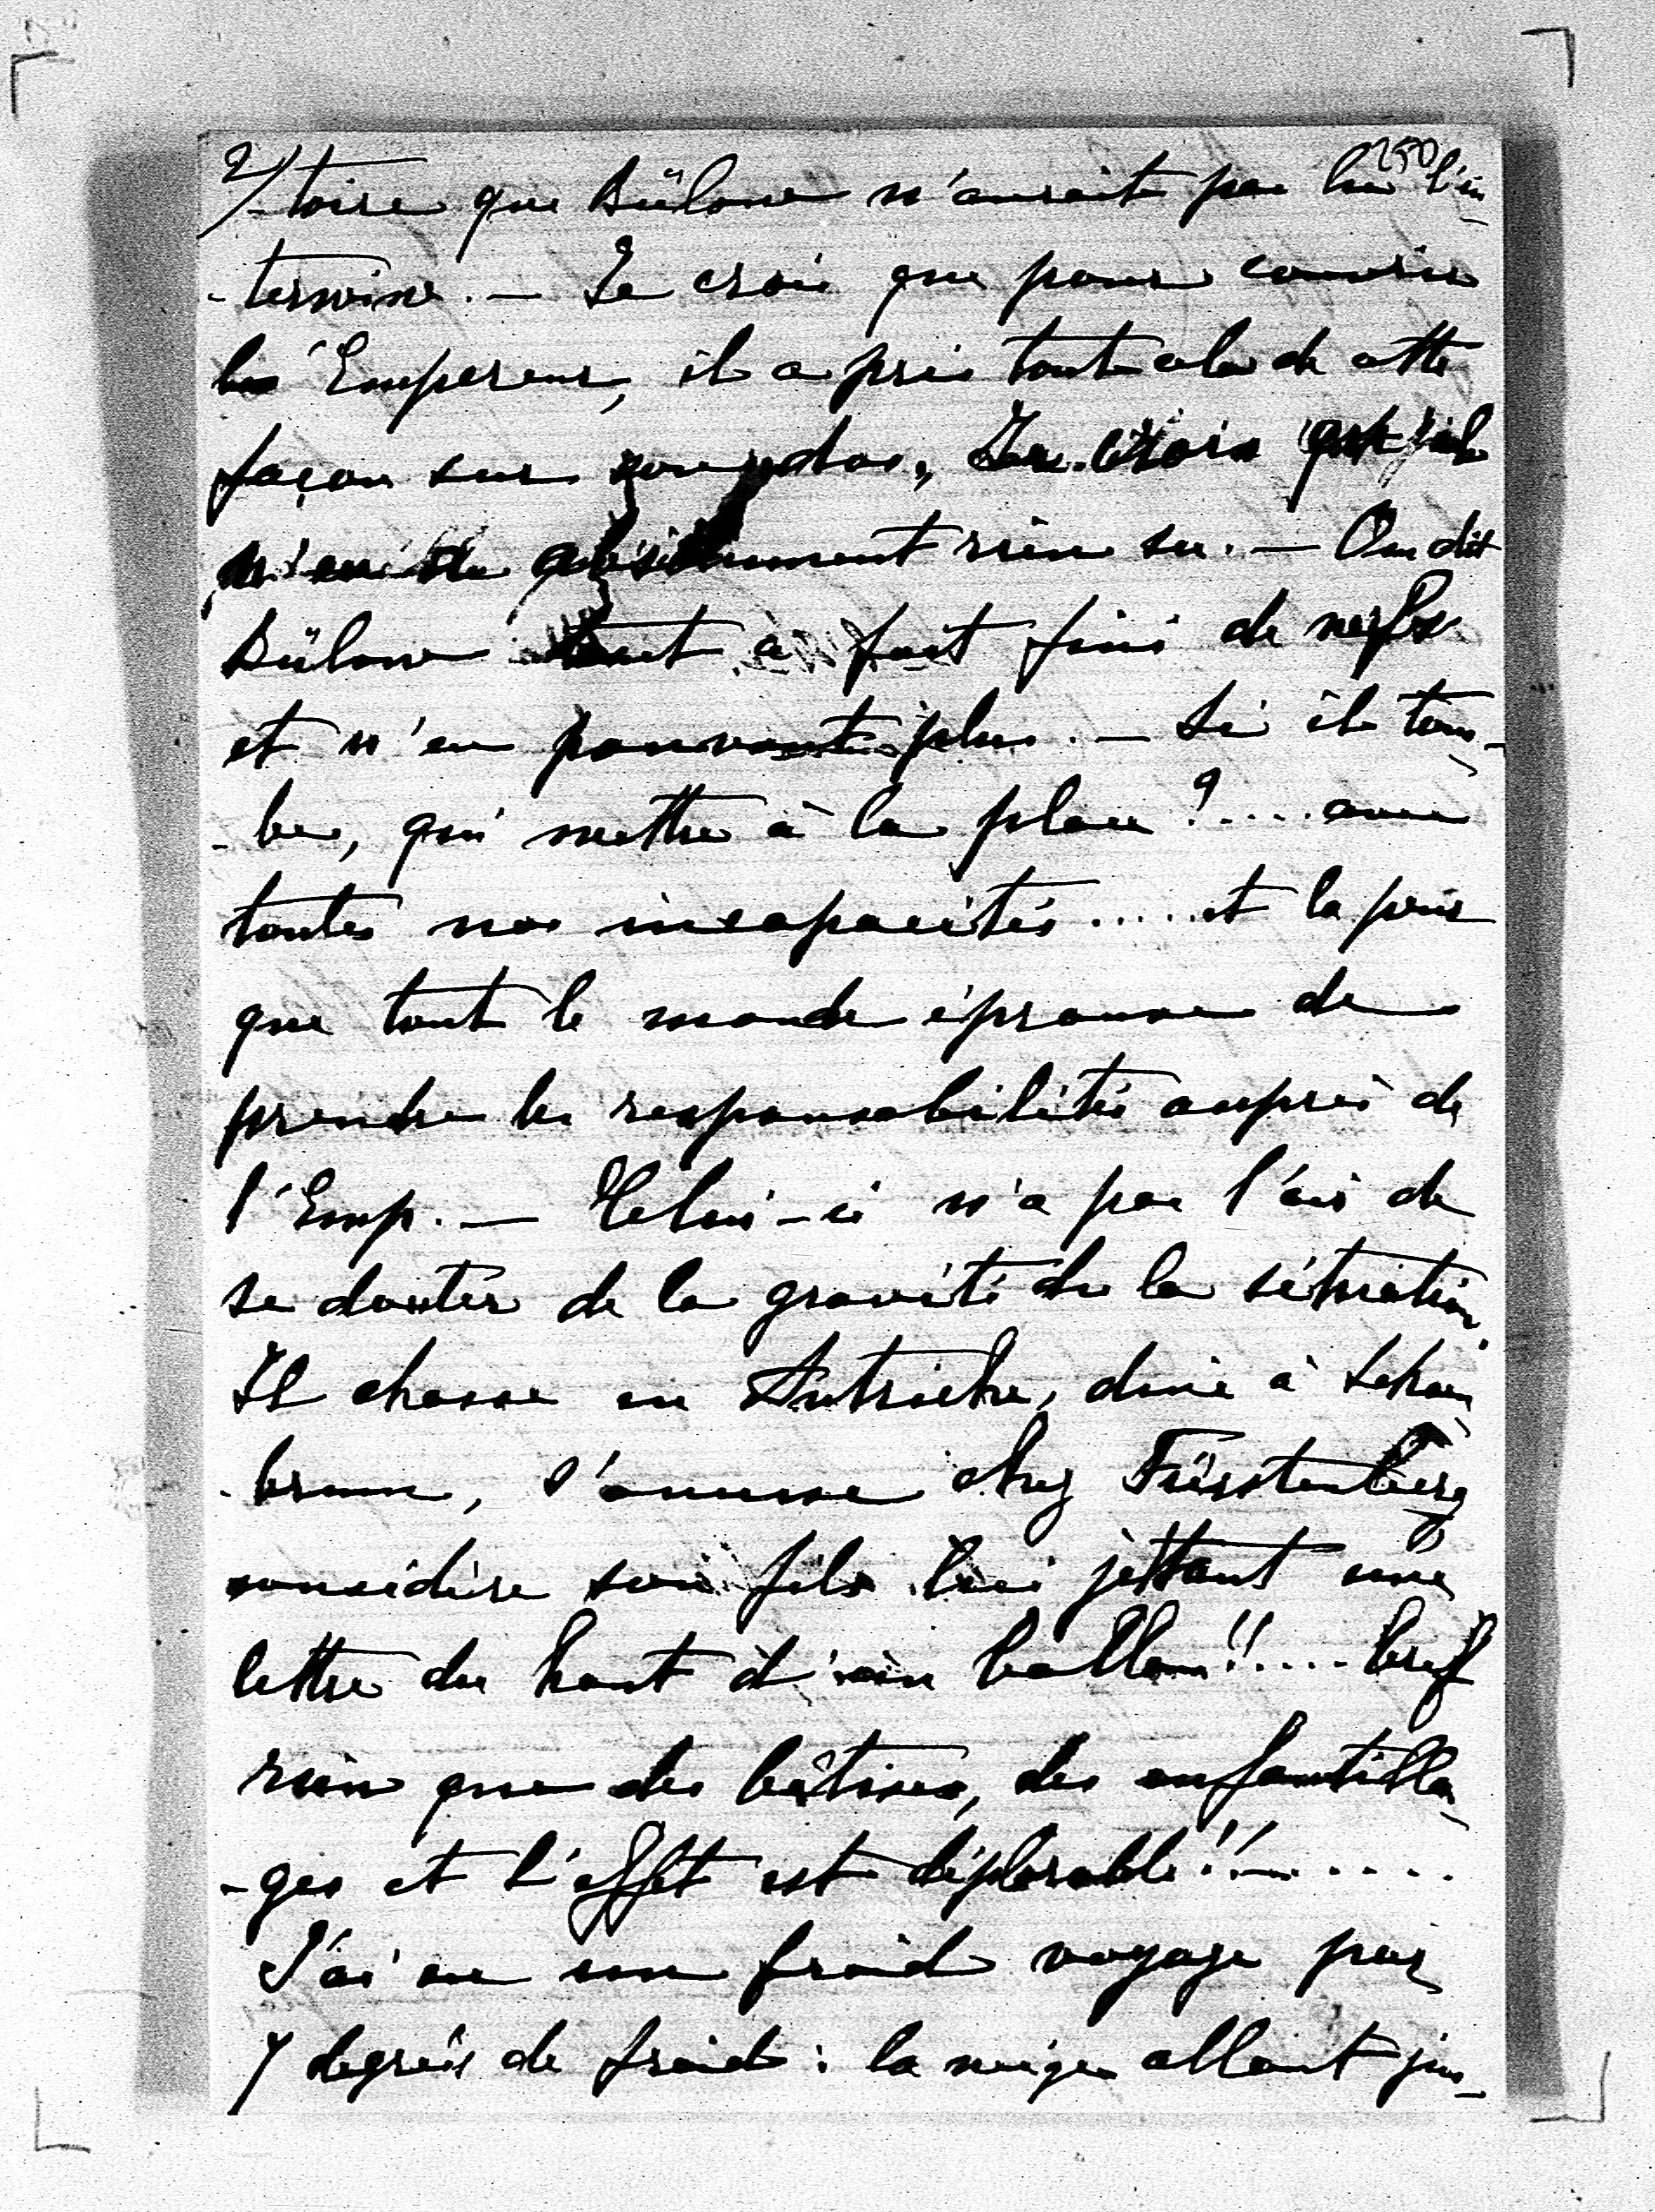 2/ 250
-toire que Bülow n'aurait pas lu l'in-
-terwiew. — Je crois que pour couvrir
les Empereur, il a pris tout cela de cette
façon sur son dos, Je crois qu'il
n'en a absolument rien su. — On dit
Bülow tout à fait fini de nerfs
et n'en pouvant plus. — Si il tom-
-be, qui mettre à la place ?.... avec
toutes nos incapacités ..... et la peur
que tout le monde éprouve de
prendre les responsabilités auprès de
l'Emp. — Celui-ci n'a pas l'air de
se douter de la gravité de la situation.
Il chasse en Autriche, dine à Schoen-
-brunn, s'amuse chez Fürstenberg
considère son fils lui jettant une
lettre du haut d'un ballon!!.... bref
rien que des bêtises, des enfantilla-
-ges et l'effet est déplorable!!......
J'ai eu un froid voyage par
7 degrés de froid : la neige allant jus-